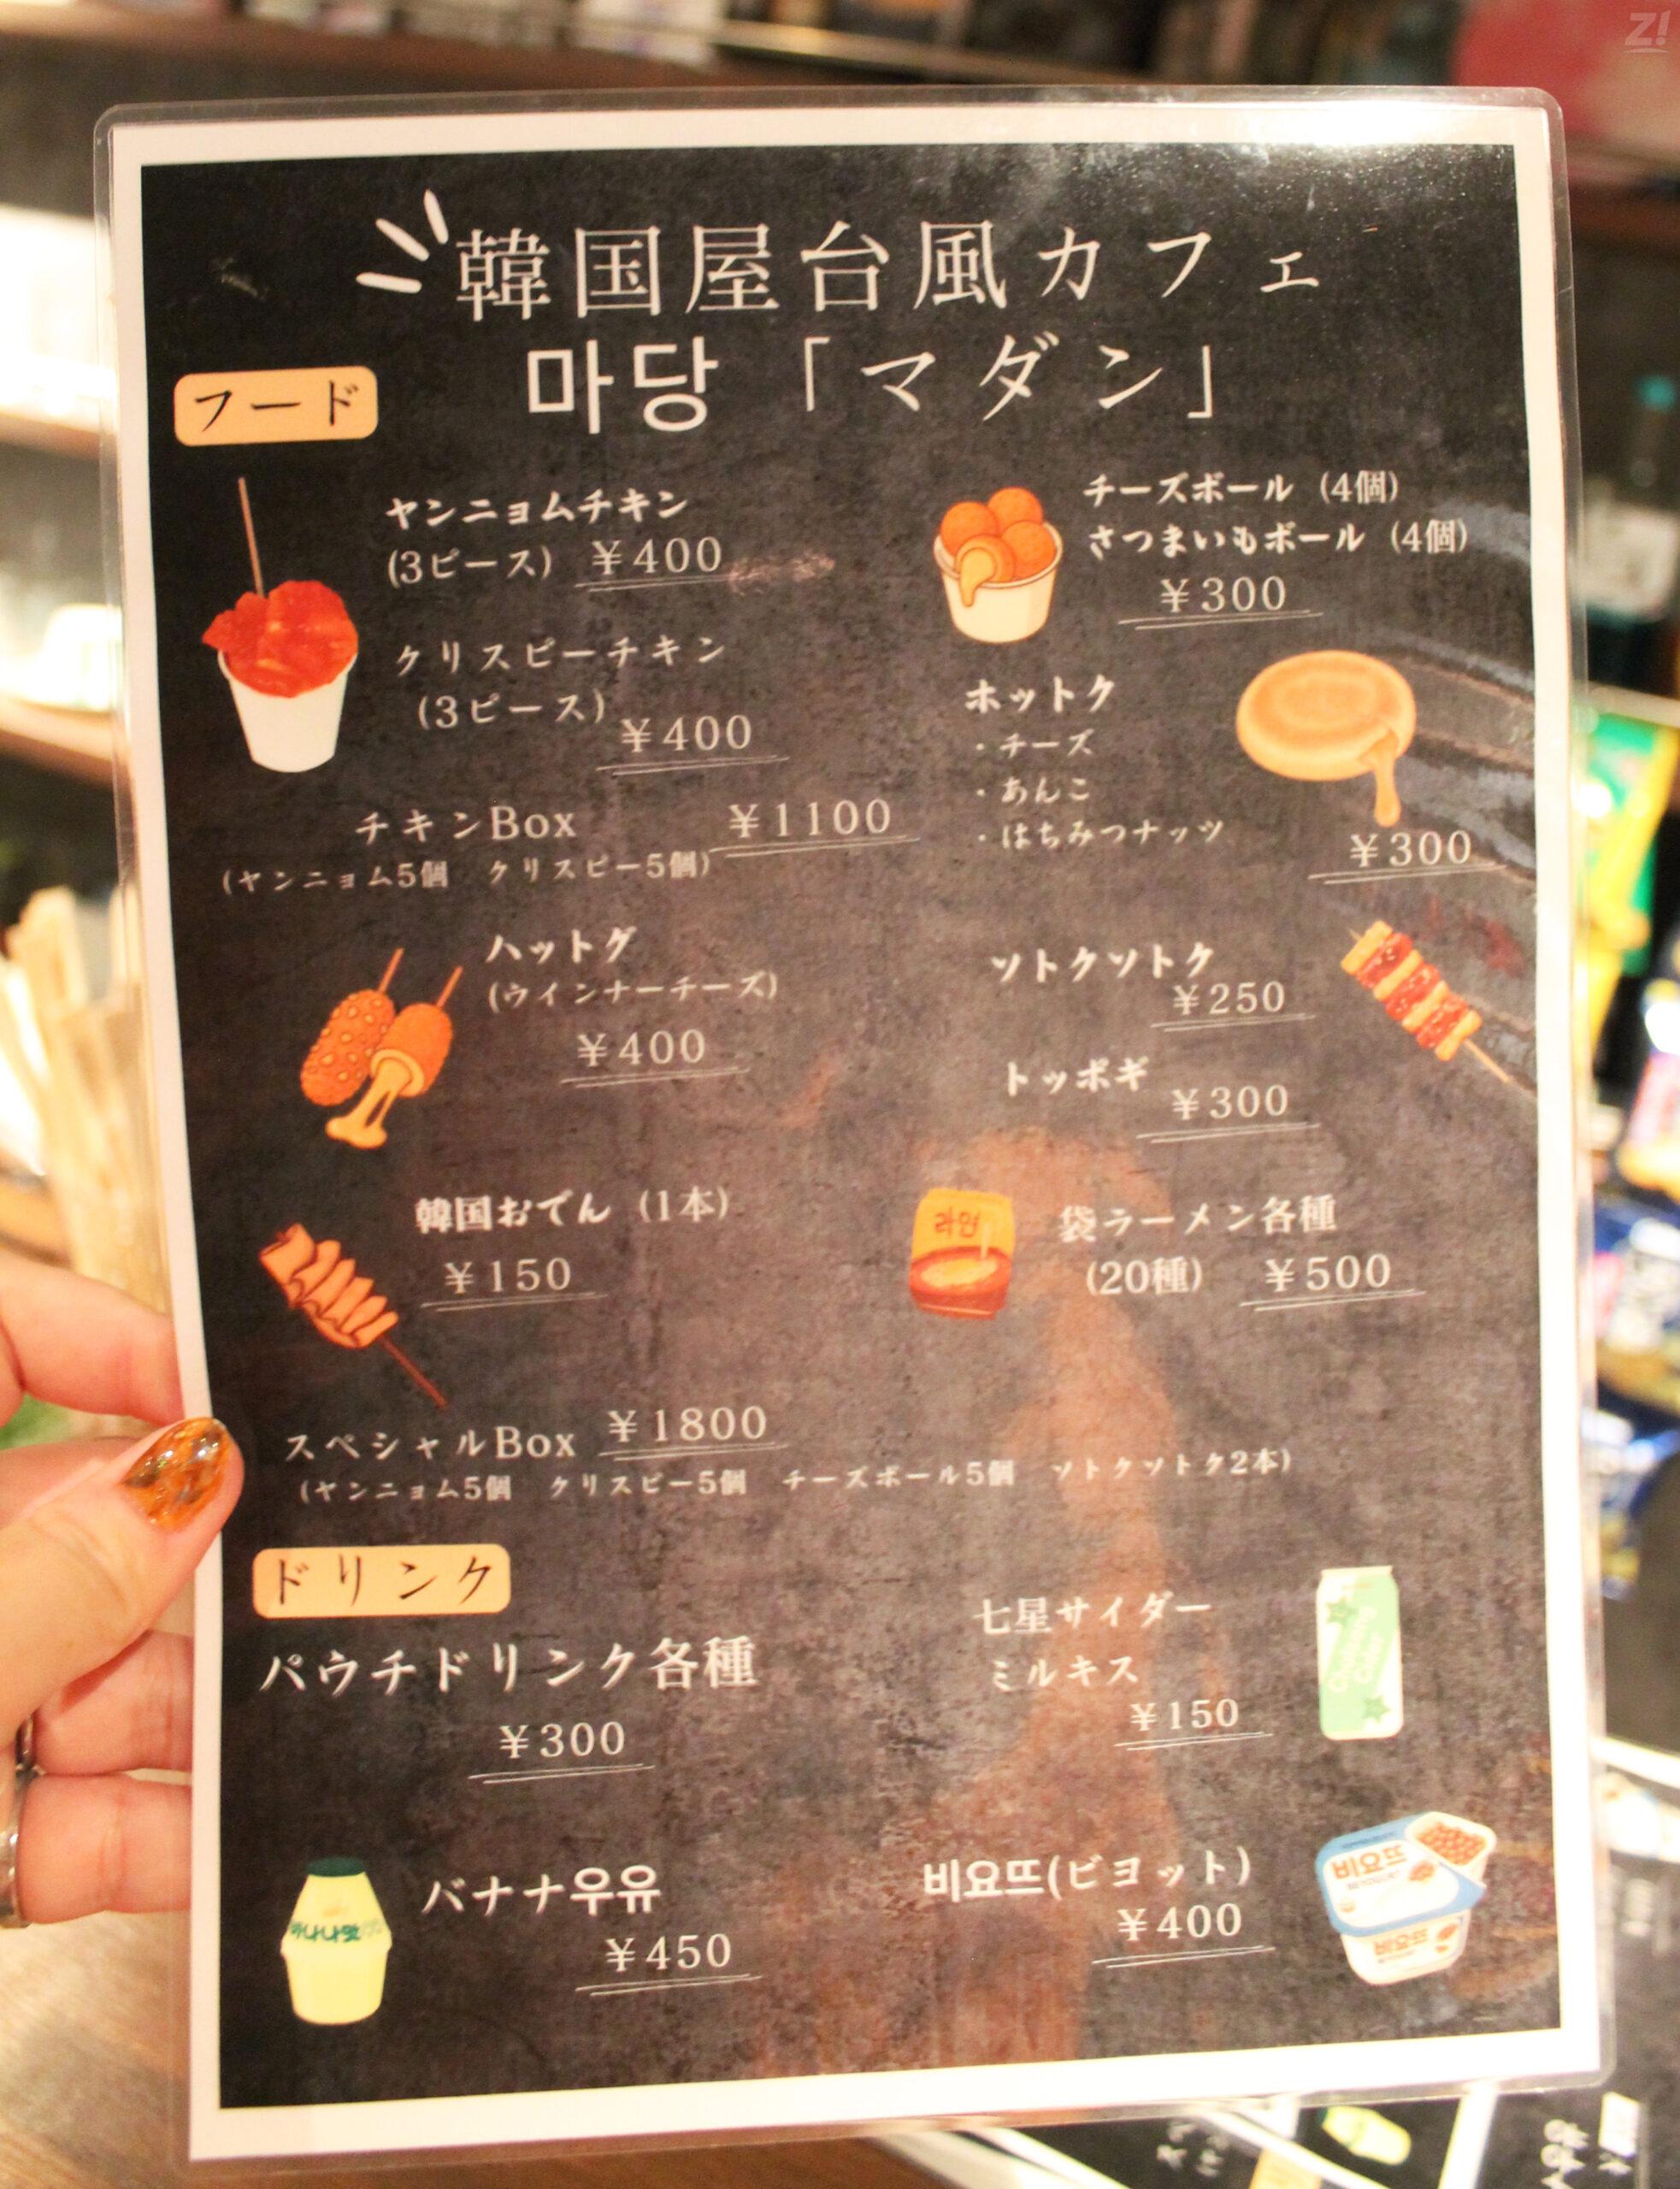 韓国屋台風カフェ
마당「マダン」
フード
ヤンニョムチキン
(3ピース) ¥400
クリスピーチキン
(3ピース)
¥400
チキンBox ¥1100
(ヤンニョム5個 クリスピー5個)
チーズボール (4個)
さつまいもボール (4個)
¥300
ホットク
・チーズ
・あんこ
・はちみつナッツ
¥300
ハットグ
(ウインナーチーズ)
¥400
ソトクソトク
¥250
トッポギ
¥300
韓国おでん (1本)
¥150
라면
袋ラーメン各種
(20種) ¥500
スペシャルBox ¥1800
(ヤンニョム5個 クリスピー5個 チーズボール5個 ソトクソトク2本)
ドリンク
パウチドリンク各種
¥300
七星サイダー
ミルキス
¥150
バナナ우유
¥450
비요뜨(ビヨット)
¥400
비요뜨
비요뜨
Z!